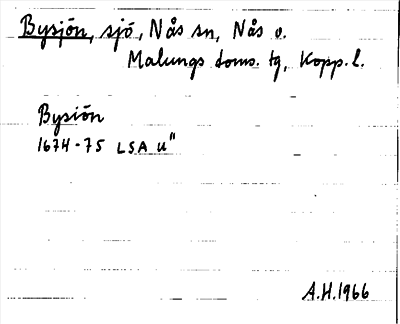 Bysjön, sjö, Nås sn, Nås o.
Malungs doms. tg, Kopp. l.
Bysiön
1674-75 LSA U"
A.H. 1966